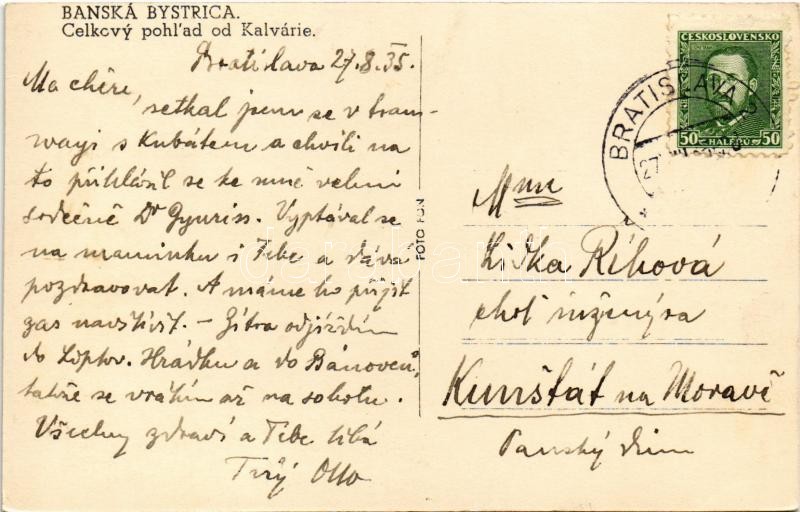 BANSKÁ BYSTRICA.
Celkový pohľad od Kalvárie.
Bratislava 27.8.35.
Ma chère,
setkal jsem se v tram-
wayi s Kubátem a chvíli na
to přihlásil se ke mně velmi
srdečně Dr Gyuriss. Vyptával se
na maminku i Tebe a dává
pozdravovat. A máme ho přijít
zas navštívit. – Zítra odjíždím
do Liptov. Hrádku a do Bánovců,
takže se vrátím až na sobotu.
Všechny zdraví a Tebe líbá
Tvůj Otto
FOTO FON
ČESKOSLOVENSKO
50 HALÉŘŮ 50
BRATISLAVA
27
Mme
Lidka Říhová
choť inženýra
Kunštát na Moravě
Panský dům
darabanth